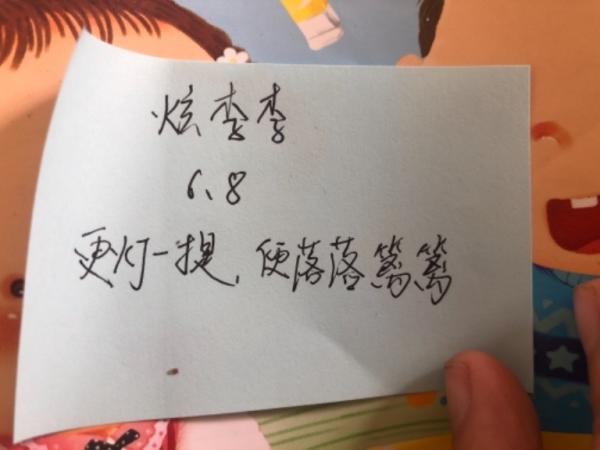 炫李李
6.8
更灯一提,便落落篤篤